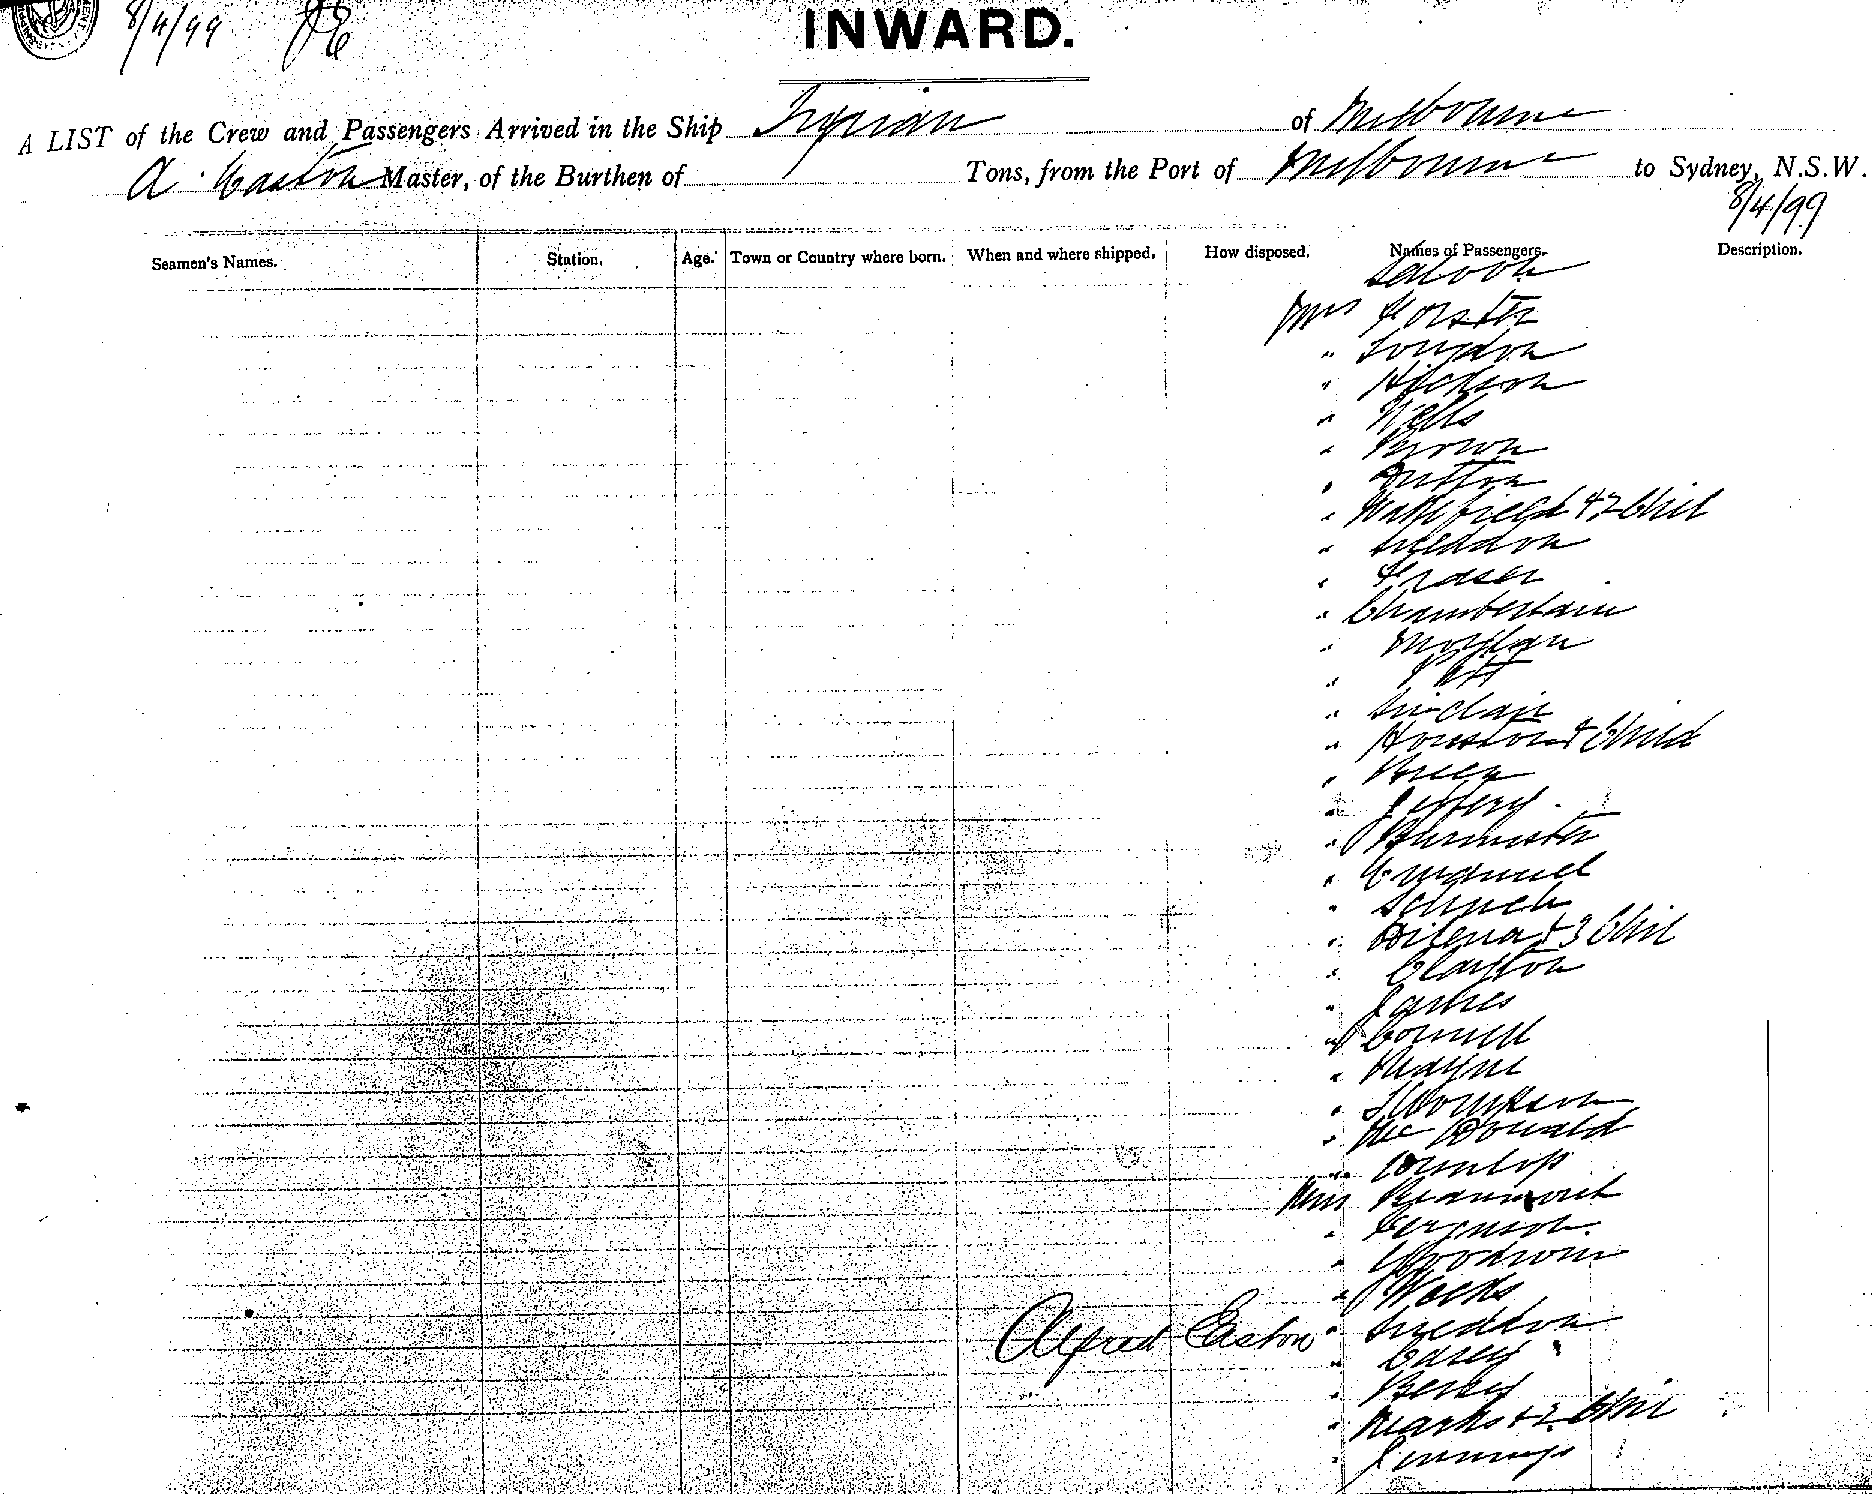 8/4/99
INWARD.
A LIST of the Crew and Passengers Arrived in the Ship Tyrian of Melbourne
A. Easton Master, of the Burthen of Tons, from the Port of Melbourne to Sydney, N.S.W.
8/4/99
Seamen's Names. Station. Age. Town or Country where born. When and where shipped. How disposed. Names of Passengers. Description.
Saloon
Mrs Forster
" Loughton
" Hickson
" Wells
" Brown
" Dutton
" Wakefield & 2 Chil
" Sneddon
" Fraser
" Chamberlain
" Morgan
" Pitt
" Sinclair
" Houston & Child
" Breen
" Jeffery
" Burmister
" Emanuel
" Schuch
" & 3 Chil
" Clayton
" James
" Connell
" Mayne
" Thompson
" McDonald
" Dunlop
Miss Beaumont
" Ferguson
" Woodrow
" Weeks
Alfred Easton " Sneddon
" Casey
" Berry
" Marks & 2 Chil
" Jennings